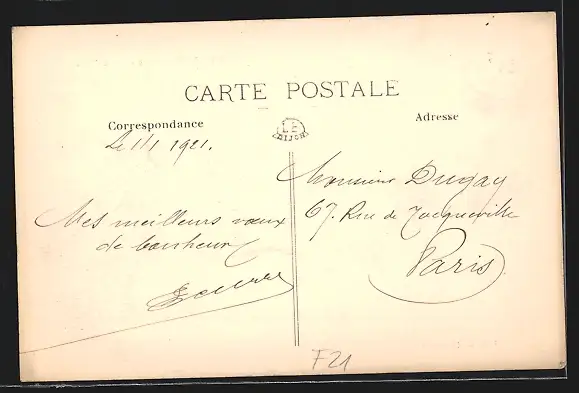 CARTE POSTALE
Correspondance
Adresse
Le 1/1 1921.
Mes meilleurs vœux
de bonheur
Monsieur Dugay
67. Rue de Tocqueville
Paris
F21